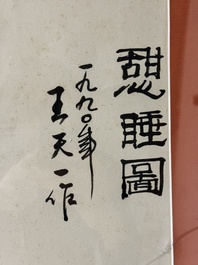 憇睡圖
一九九〇年
王天一作